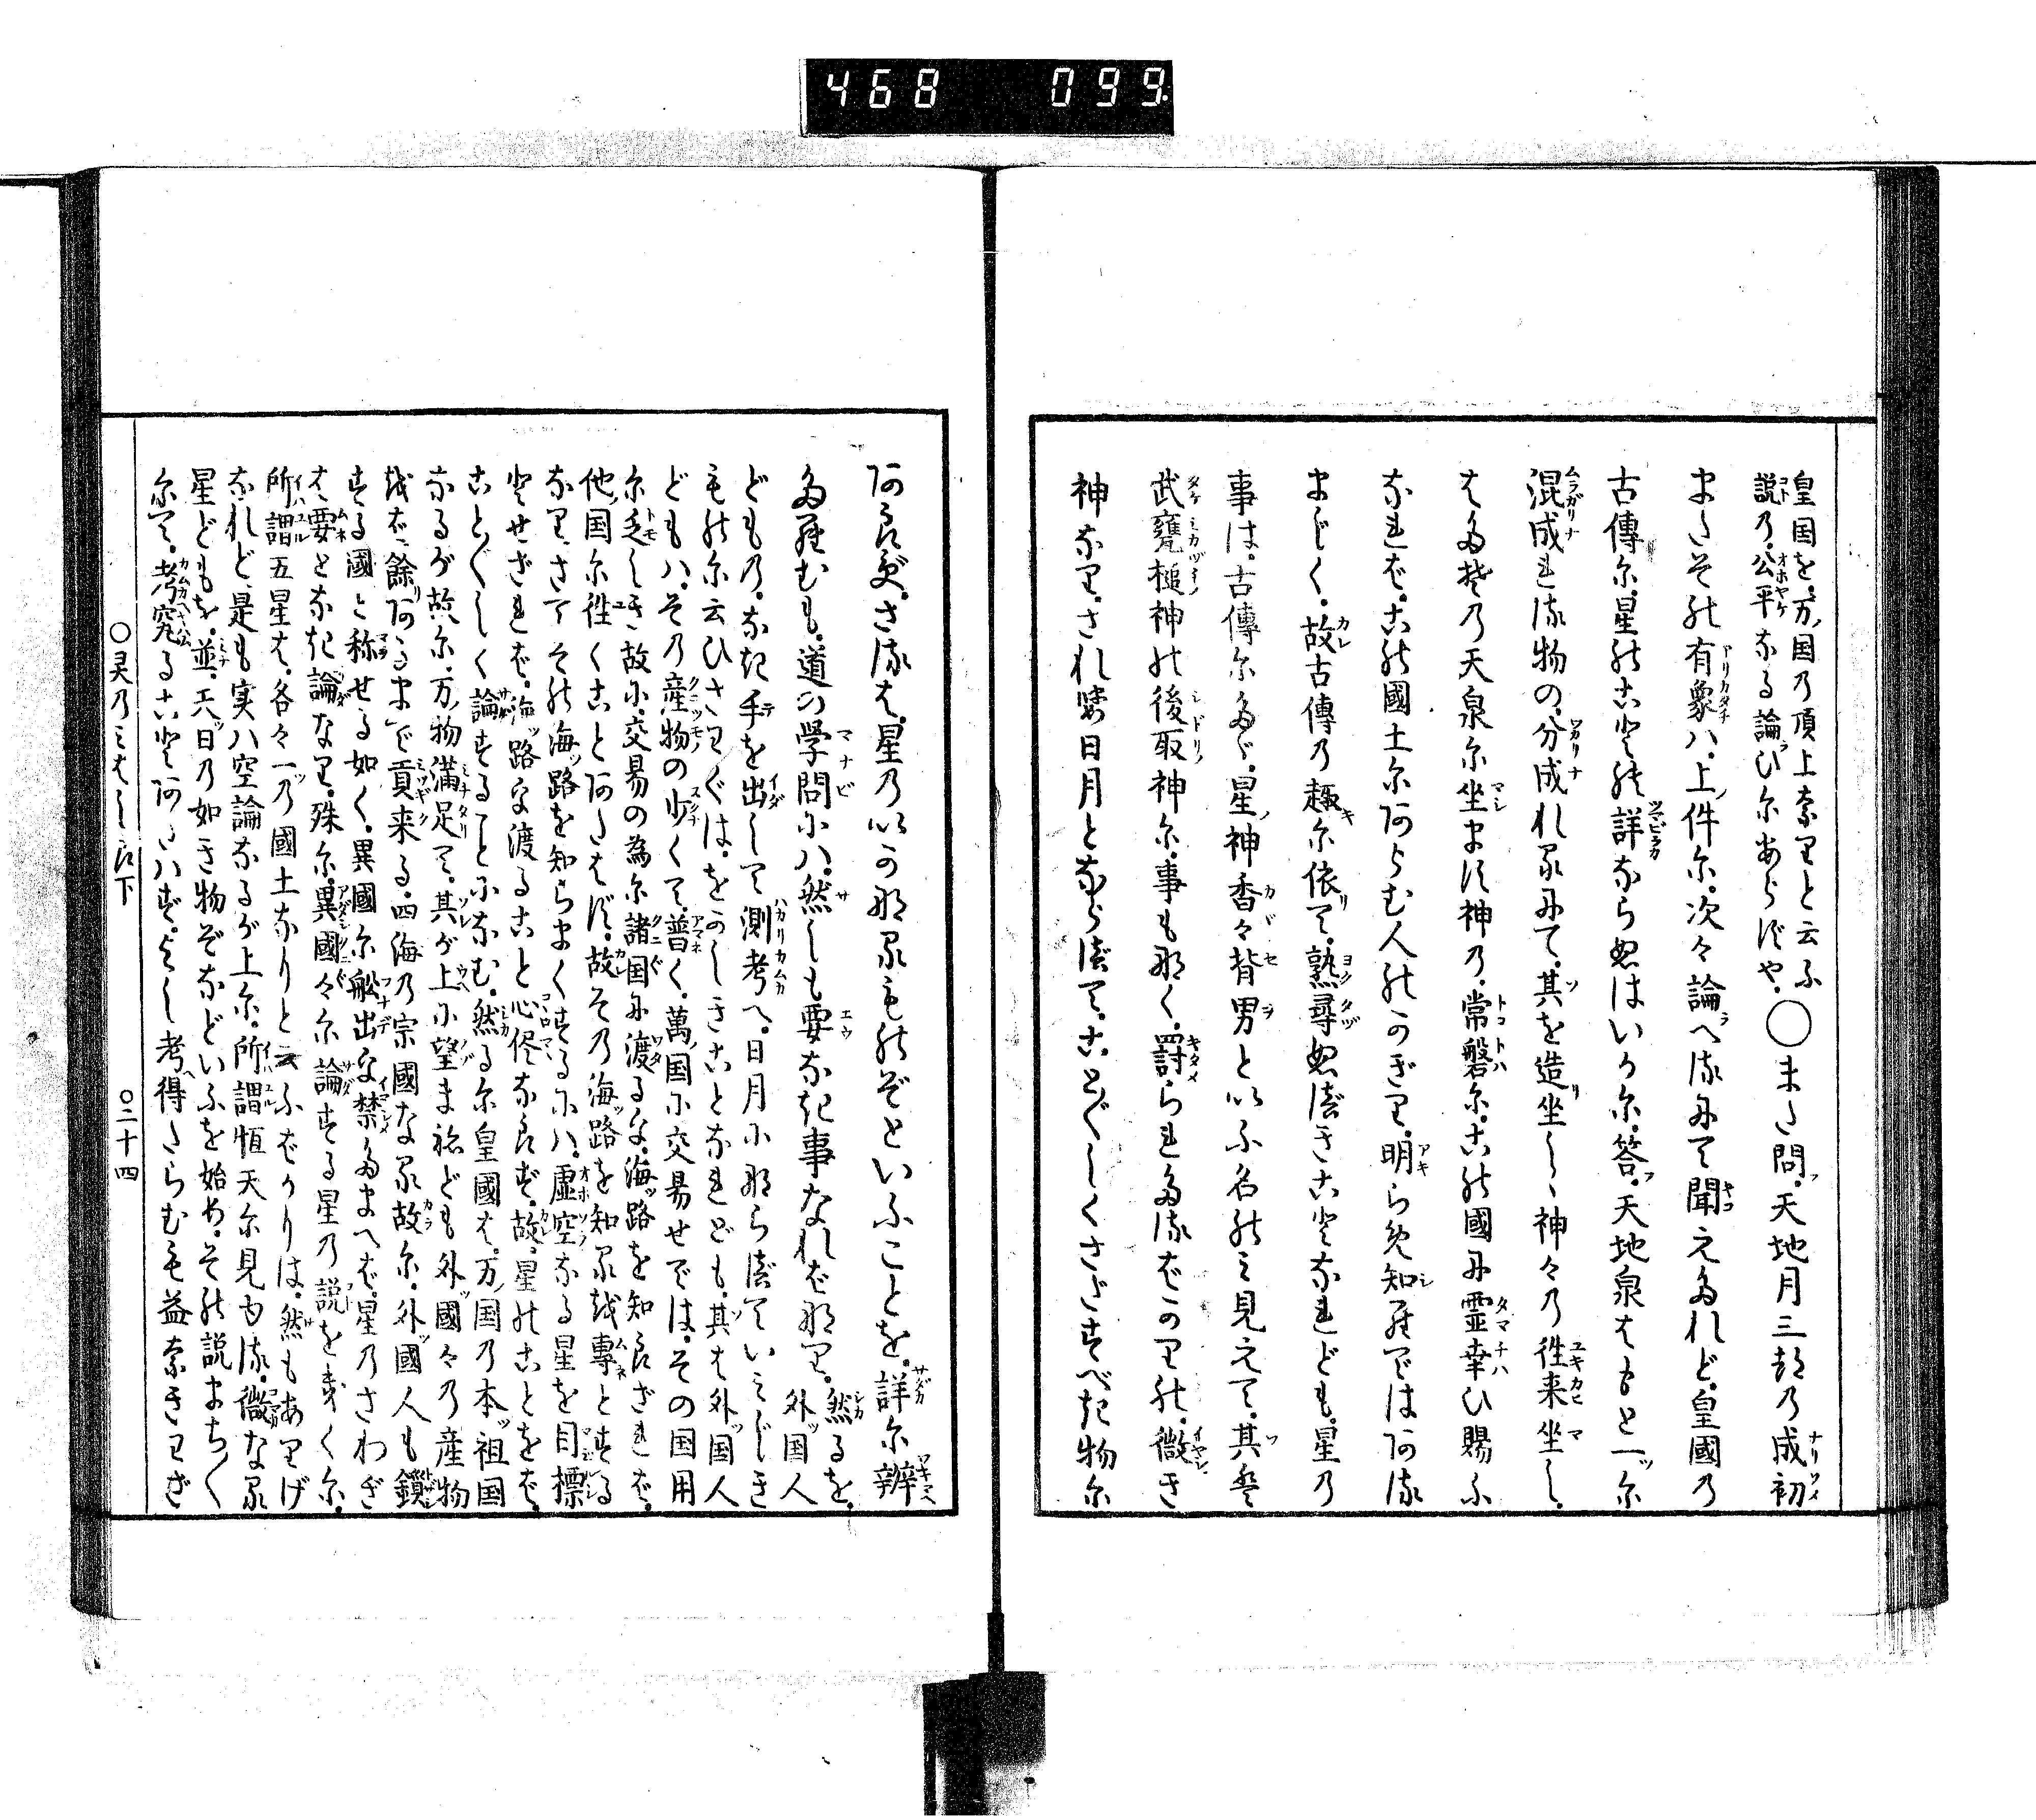 468 099.
皇国を、万国乃頂上奈りと云ふ
説乃、公平なる論ひ尓あらずや、
○また問、天地月三都乃成初
またその有象ハ、上件尓次々論へる尓て聞えたれど、皇國乃
古傳尓、星のことの詳ならぬはいかに、答、天地泉はもと一ツ尓
混成れる物の、分成れるにて、其を造坐しゝ神々乃徃来坐し、
はた其の天泉尓坐ます神乃、常磐尓、この國に霊幸ひ賜ふ
なれば、この國土尓あらむ人のかぎり、明らめ知らでは、ある
まじく、故古傳乃趣尓依て、熟尋ぬべきことなれども、星乃
事は、古傳尓たゞ、星神香々背男といふ名のみ見えて、其は
武甕槌神の後取神尓、事も那く、罸られたるばかりの、微き
神なり、されば日月とならべて、ことごとしくさだすべき物尓
あらず、さるは、星乃いかなるものぞといふことを、詳尓辨
たらむも、道の学問にハ、然しも要なき事なればなり、
然るを、外国人
どもの、なき手を出して測考へ、日月にならべていみじき
ものに云ひさわぐは、をかしきことなれども、其は外国人
どもハ、その産物の少くて、普く、萬国に交易せでは、その国用
尓乏しき故に、交易の為尓諸国に渡るを、海路を知らざれば、
他国尓徃くことあたはず、故その海路を知るを専とする
なり、さてその海路を知らまくするにハ、虚空なる星を目標
とせざれば、海路を渡ること心侭ならず、故、星のことをば、
ことごとしく論することになむ、然る尓皇國は、万国乃本祖国
なるが故尓、万物満足て、其が上に望まねども外國々乃産物
をば、餘りあるまで貢来る、四海乃宗國なる故尓、外國人も鎖
する國と称せる如く、異國尓舩出を禁たまへば、星乃さわぎ
は要となき論なり、殊尓、異國々尓論する星乃説を聞く尓、
所謂五星は、各々一ツ乃國土なりと云ふばかりは、然もありげ
なれど、是も実ハ空論なるが上尓、所謂恒天尓見ゆる、微なる
星どもを、並、大日乃如き物ぞなどいふを始め、その説まちまち
尓て、考究ることあたハず、よし考得たらむも益なきわざ
○灵乃みはしら下
○二十四